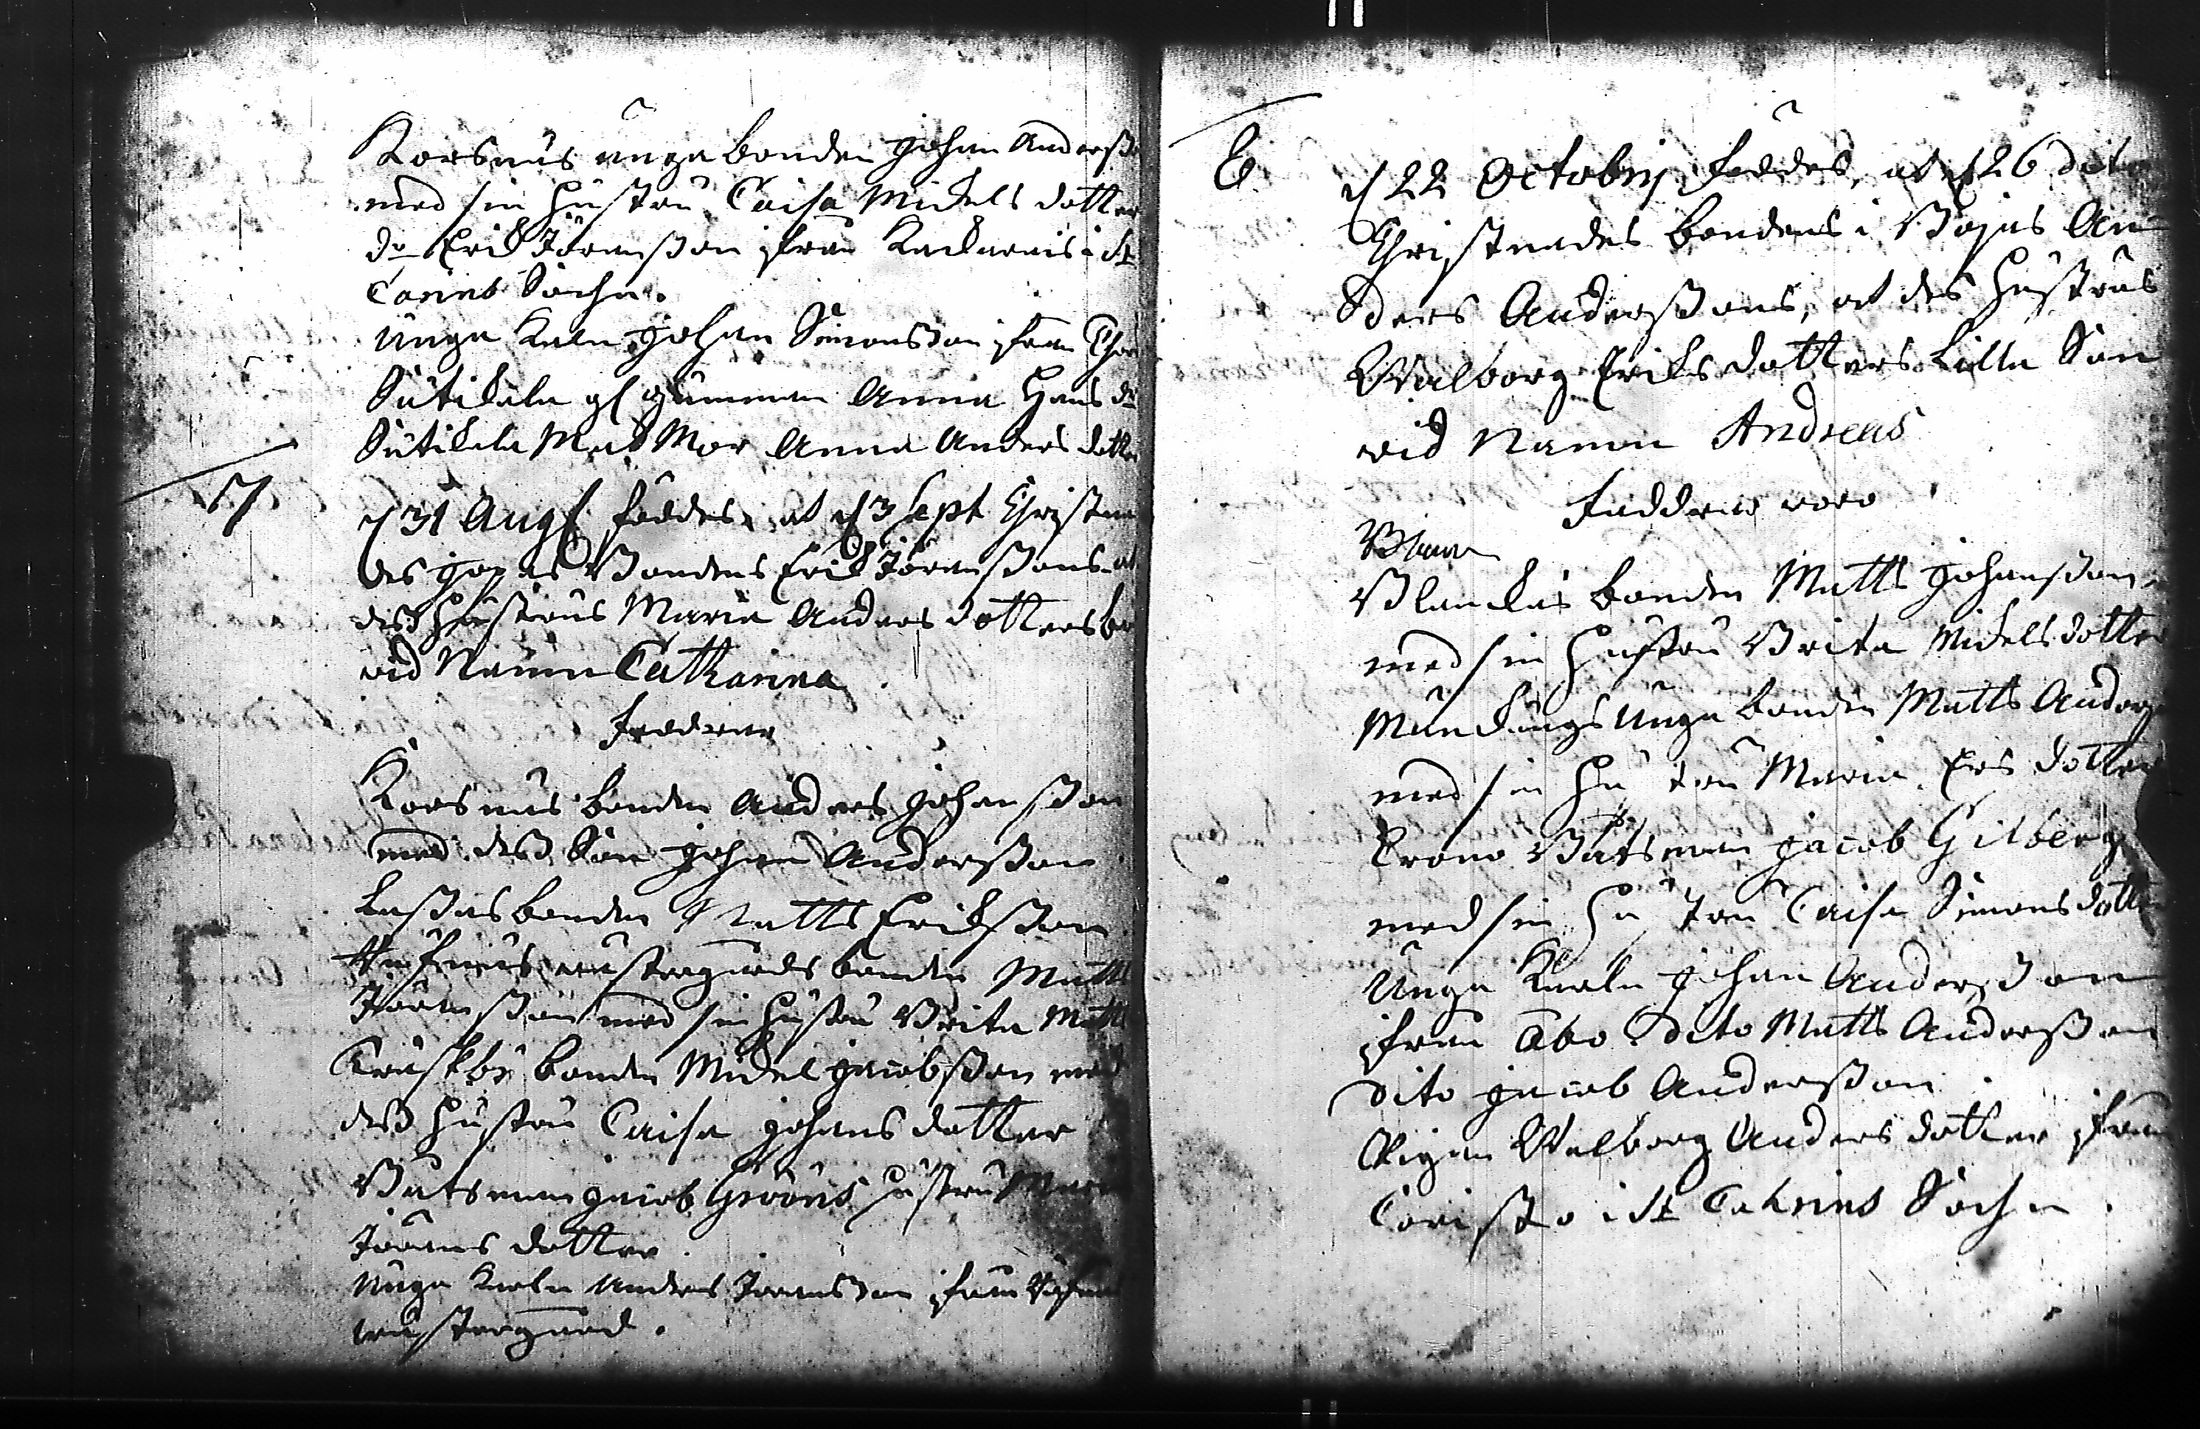 Korsnäs unga bonden Johan Anderß
med sin hustru Caisa Michels dotter
do Erik Jöranßon ifrån i St
Carins Sochn.
Unga Karln Johan Simonsson ifrån
Sutikala gl gumman Anna Hans dr
Sutikala Mat Mor Anna Anders dotter
57
d 31 Augs föddes, at d 3 Sept Christna
des Bondens Erik Jöranßons at
deß hustrus Maria Anders dotters
vid Namn Catharina
Faddrar
Korsnäs bonden Anders Johanßon
med deß Son Johan Anderßon
Laßas bonden Matts Erikßon
rusthålls bonden Matts
Jöranßon med sin hustru Brita Matts
Kruskby bonden Michel Jacobßon med
deß hustru Caisa Johans dotter
Båtsman Jacob Gröns hustru Maria
Jörans dotter.
Unga Karln Anders Jöransson ifrån

6
d 22 Octobris föddes, at d 26 dito
Christnades bondens i Böjas An
ders Anderßons, at des hustrus
Walborg Eriks dotters lilla Son
vid Namn Andreas
Faddrar voro
Blankas bonden Matts Johanßon
med sin hustru Brita Michels dotter
Munkängs Unga bonden Matts Anderß
med sin hustru Maria Ers dotter
Crono Båtsman Jacob Gilberg
med sin hustru Caisa Simons dotter
Unga Karln Johan Anderßon
ifrån Åbo Dito Matts Anderßon
Dito Jacob Anderßon
Pigan Walborg Anders dotter ifrån
i St Cahrins Sochn.